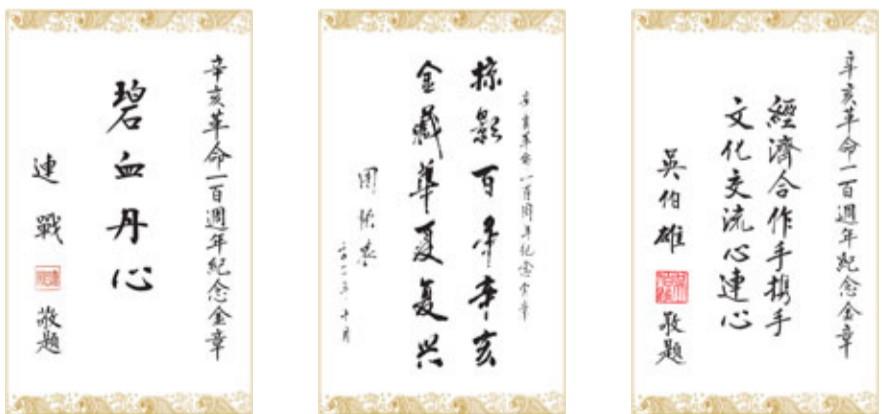 辛亥革命一百週年紀念金章
碧血丹心
連戰
敬題
辛亥革命一百周年纪念金章
掠影百年辛亥
金藏華夏复兴
二〇一一年十月
辛亥革命一百週年紀念金章
經濟合作手攜手
文化交流心連心
吳伯雄
敬題